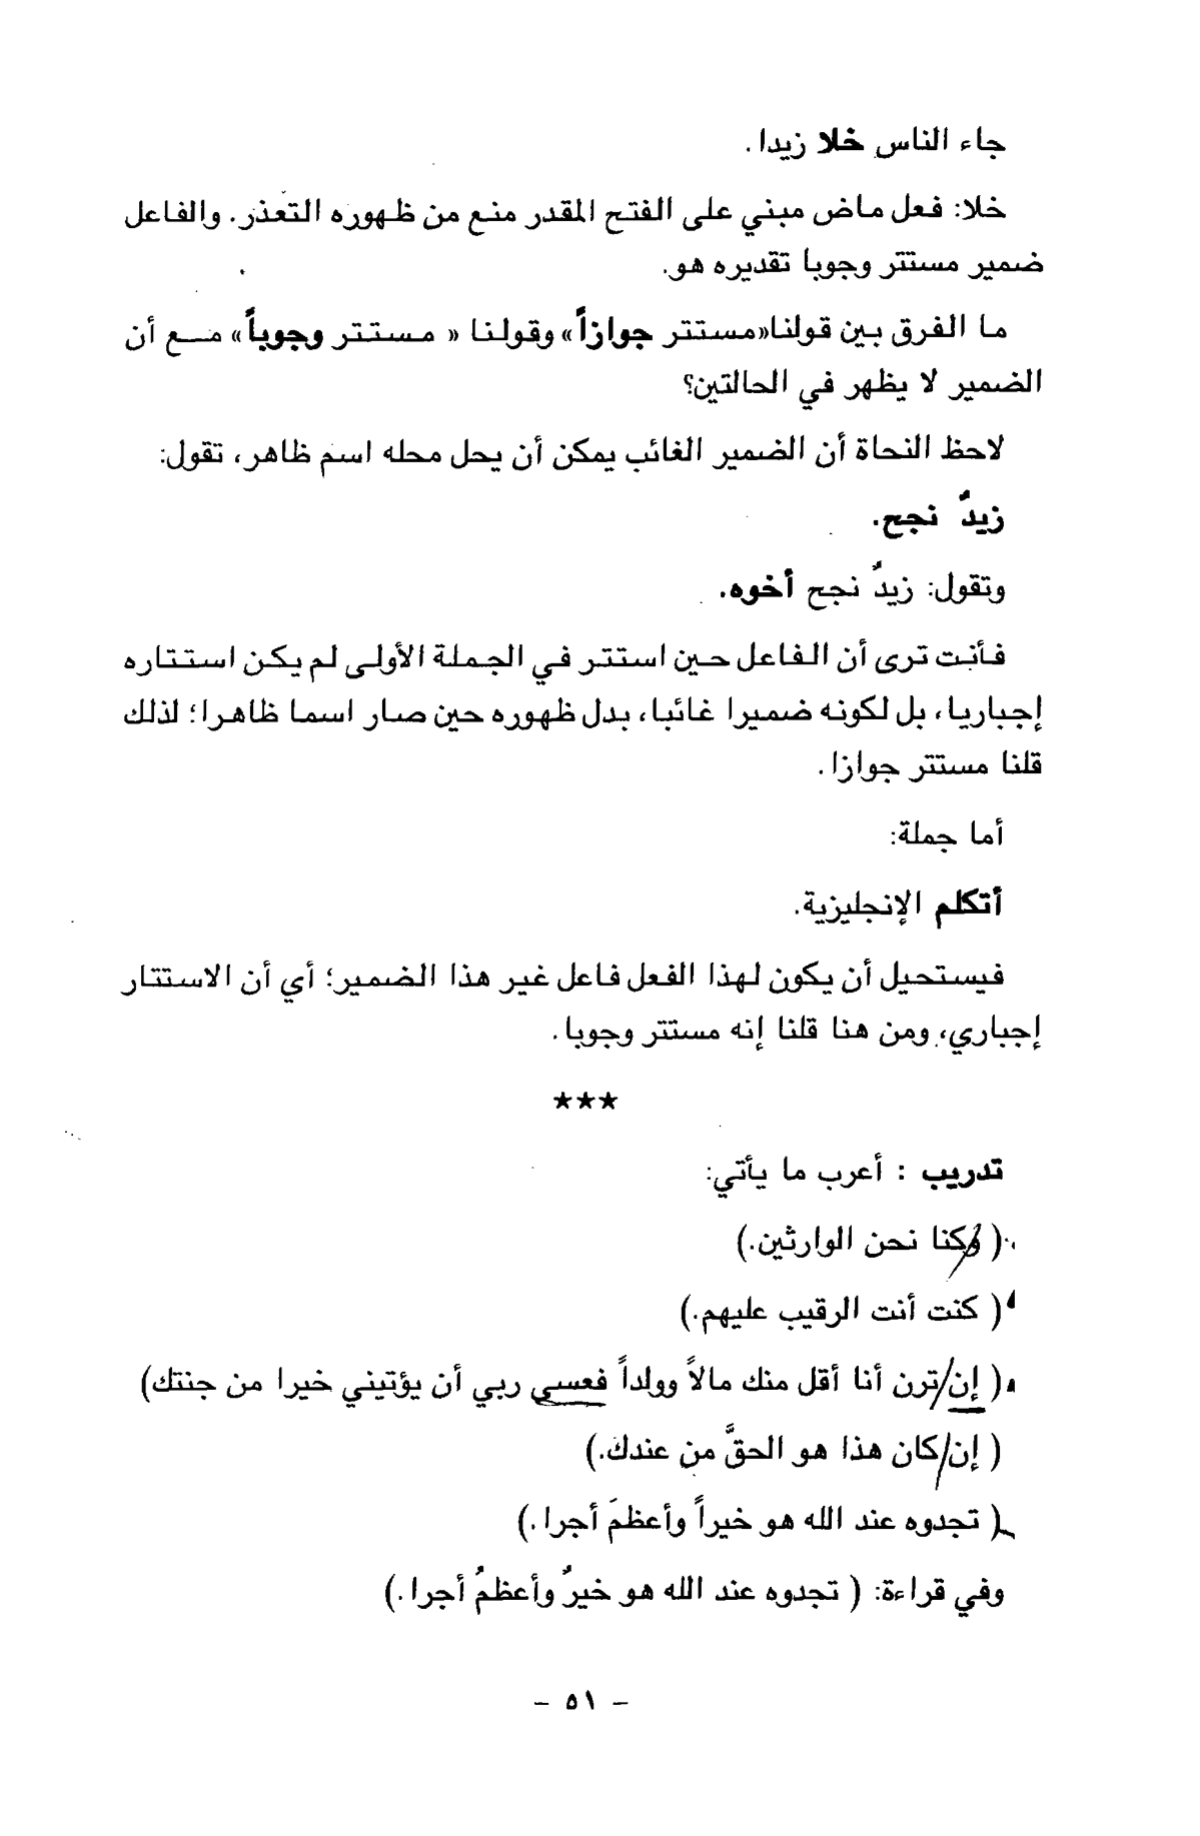 جاء الناس خلا زيدا.
خلا: فعل ماض مبني على الفتح المقدر منع من ظهوره التعذر. والفاعل
ضمير مستتر وجوبا تقديره هو.
ما الفرق بين قولنا«مستتر جوازاً» وقولنا « مستتر وجوباً» مع أن
الضمير لا يظهر في الحالتين؟
لاحظ النحاة أن الضمير الغائب يمكن أن يحل محله اسم ظاهر، تقول:
زيدٌ نجح.
وتقول: زيدٌ نجح أخوه.
فأنت ترى أن الفاعل حين استتر في الجملة الأولى لم يكن استتاره
إجباريا، بل لكونه ضميرا غائبا، بدل ظهوره حين صار اسما ظاهرا؛ لذلك
قلنا مستتر جوازا.
أما جملة:
أتكلم الإنجليزية.
فيستحيل أن يكون لهذا الفعل فاعل غير هذا الضمير؛ أي أن الاستتار
إجباري، ومن هنا قلنا إنه مستتر وجوبا.
***
تدريب : أعرب ما يأتي:
( وكنا نحن الوارثين.)
( كنت أنت الرقيب عليهم.)
( إن ترن أنا أقل منك مالاً وولداً فعسى ربي أن يؤتيني خيرا من جنتك)
( إن كان هذا هو الحقَّ من عندك.)
( تجدوه عند الله هو خيراً وأعظمَ أجرا.)
وفي قراءة: ( تجدوه عند الله هو خيرٌ وأعظمُ أجرا.)
- ٥١ -